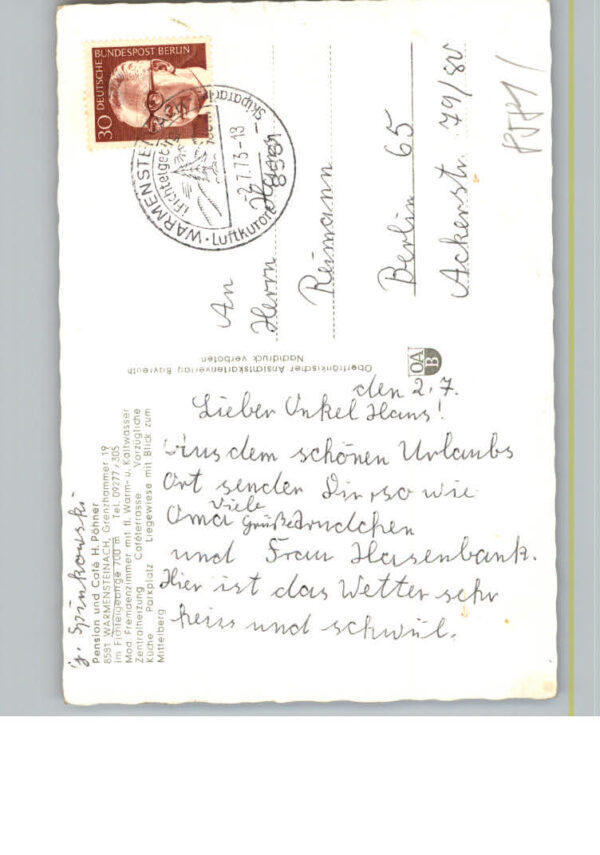 DEUTSCHE BUNDESPOST BERLIN
30
WARMENSTEINACH
Fichtelgebirge
-2.7.73-18
8581
· Luftkurort
An
Herrn Hans
Reimann
Berlin 65
Ackerstr. 79/80
Oberfränkischer Ansichtskartenverlag Bayreuth
Nachdruck verboten
OA
B
den 2. 7.
Lieber Onkel Hans!
Aus dem schönen Urlaubs
Ort senden Dir, so wie
Oma viele Grüße Trudchen
und Frau Hasenbank.
Hier ist das Wetter sehr
heiss und schwül.
Spinkowski
Pension und Café H. Pöhner
8581 WARMENSTEINACH, Grenzhammer 19
im Fichtelgebirge 700 m Tel. 09277/305
Mod. Fremdenzimmer mit fl. Warm- u. Kaltwasser
Zentralheizung Caféterrasse Vorzügliche
Küche Parkplatz Liegewiese mit Blick zum
Mittelberg